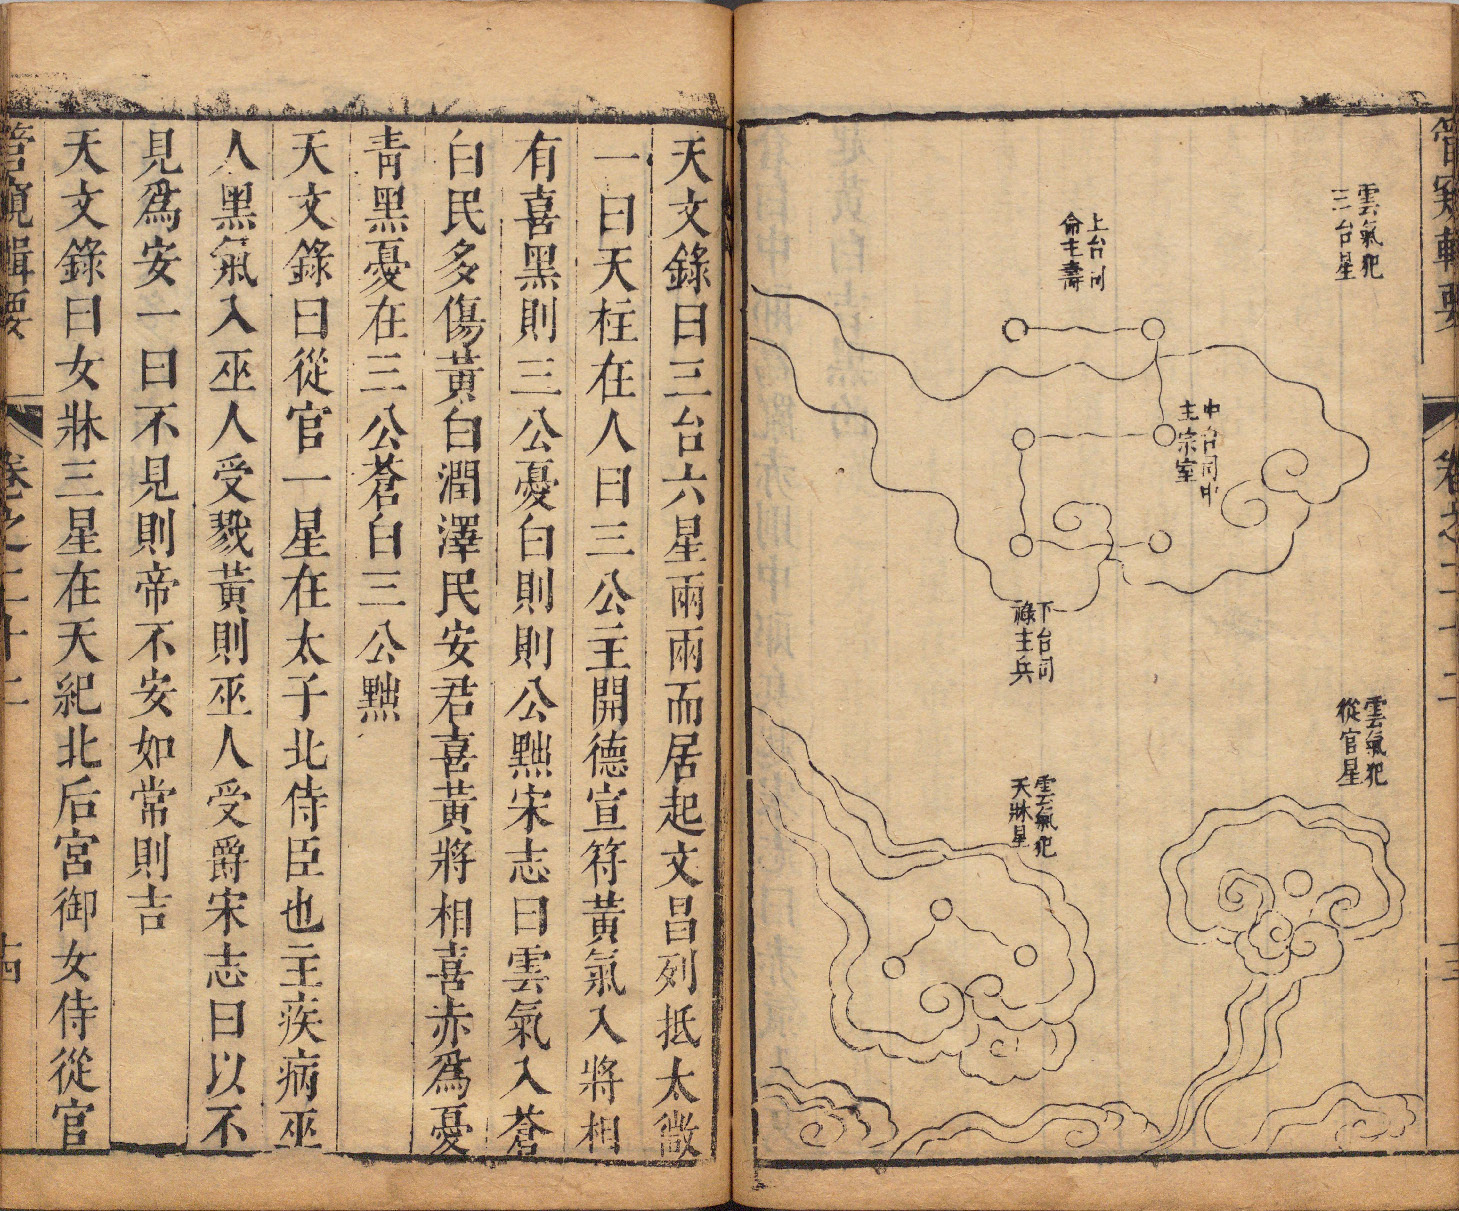 雲氣犯
三台星
上台司
命主壽
中台司中
主宗室
下台司
祿主兵
雲氣犯
從官星
雲氣犯
天牀星
天文錄曰三台六星兩兩而居起文昌列抵太微
一曰天柱在人曰三公主開德宣符黃氣入將相
有喜黑則三公憂白則則公黜宋志曰雲氣入蒼
白民多傷黃白潤澤民安君喜黃將相喜赤為憂
青黑憂在三公蒼白三公黜
天文錄曰從官一星在太子北侍臣也主疾病巫
人黑氣入巫人受戮黃則巫人受爵宋志曰以不
見爲安一曰不見則帝不安如常則吉
天文錄曰女牀三星在天紀北后宮御女侍從官
管窺輯要
卷之二十二
十四